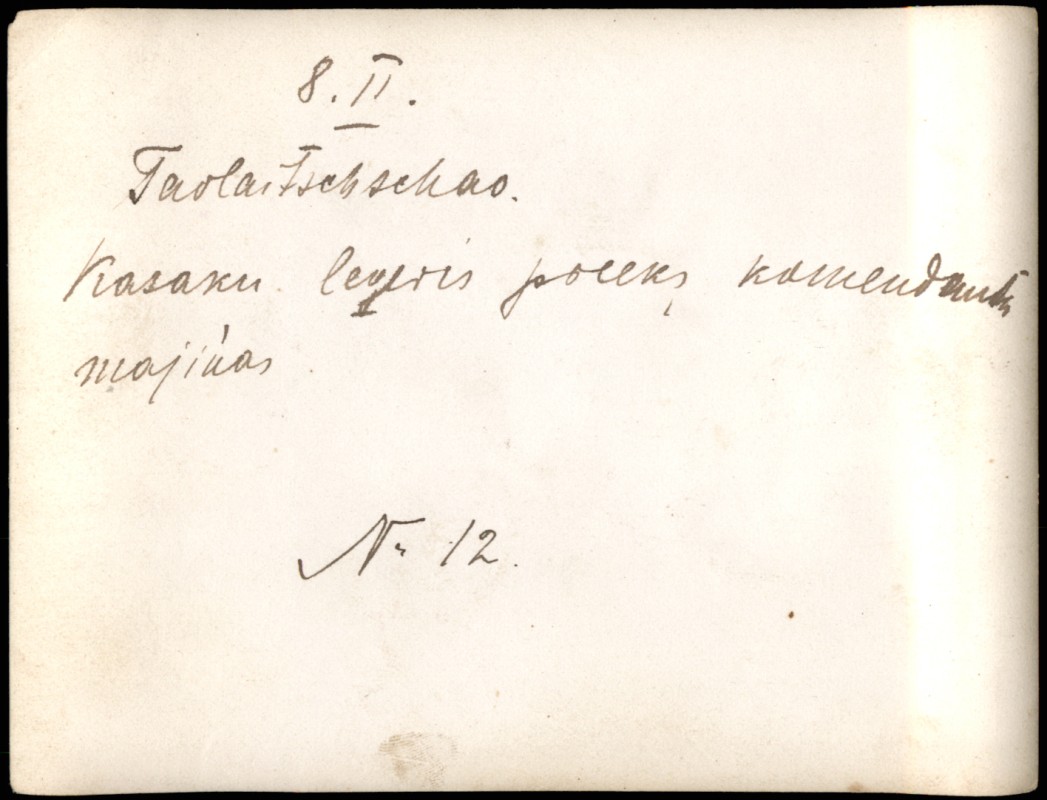 8. II.
Taolaitschschao.
Kasaku legeris preekş komendanta
majiņas
No 12.